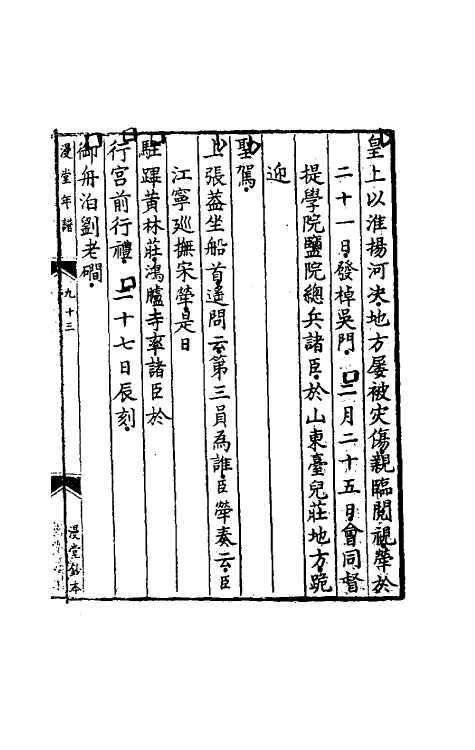 皇上以淮楊河决地方屡被灾傷親臨閲視犖於
二十一日發棹吳門二月二十五日會同督
提學院鹽院總兵諸臣於山東臺兒莊地方跪
迎
聖駕
上張蓋坐船首遥問云第三員為誰臣犖奏云臣
江寧廵撫宋犖是日
駐蹕黄林莊鴻臚寺率諸臣於
行宫前行禮二十七日辰刻
御舟泊劉老磵
漫堂年譜
九十三
漫堂鈔本